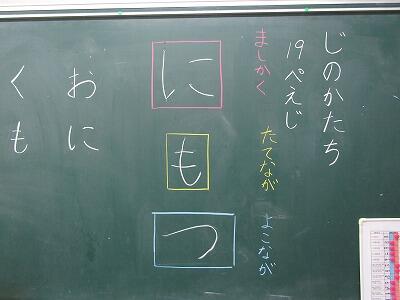 じのかたち
19ぺえじ
ましかく
たてなが
よこなが
に
も
つ
おに
くも